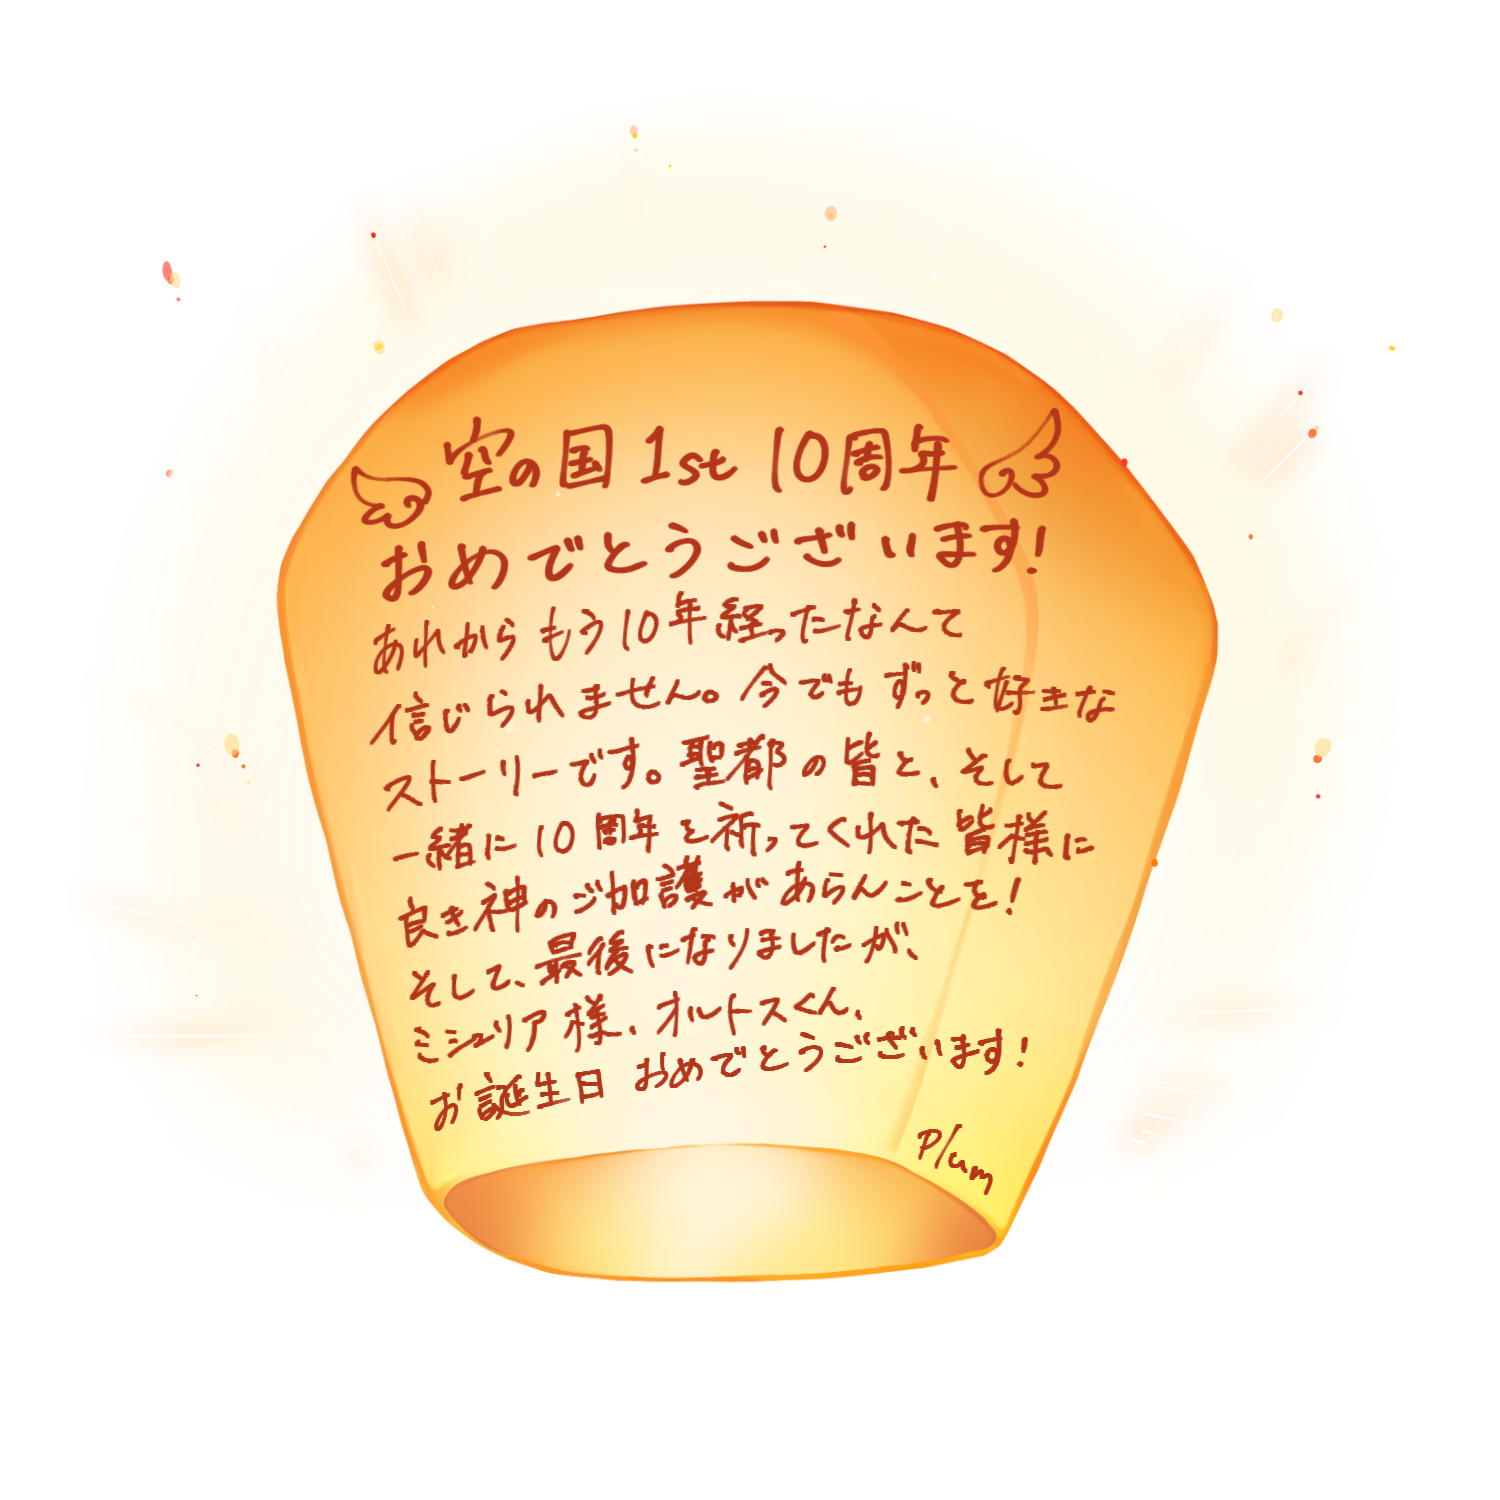 空の国 1st 10周年
おめでとうございます!
あれからもう10年経ったなんて
信じられません。今でもずっと好きな
ストーリーです。聖都の皆と、そして
一緒に10周年を祈ってくれた皆様に
良き神のご加護があらんことを!
そして、最後になりましたが、
ミシュリア様、オルトスくん、
お誕生日おめでとうございます!
Plum